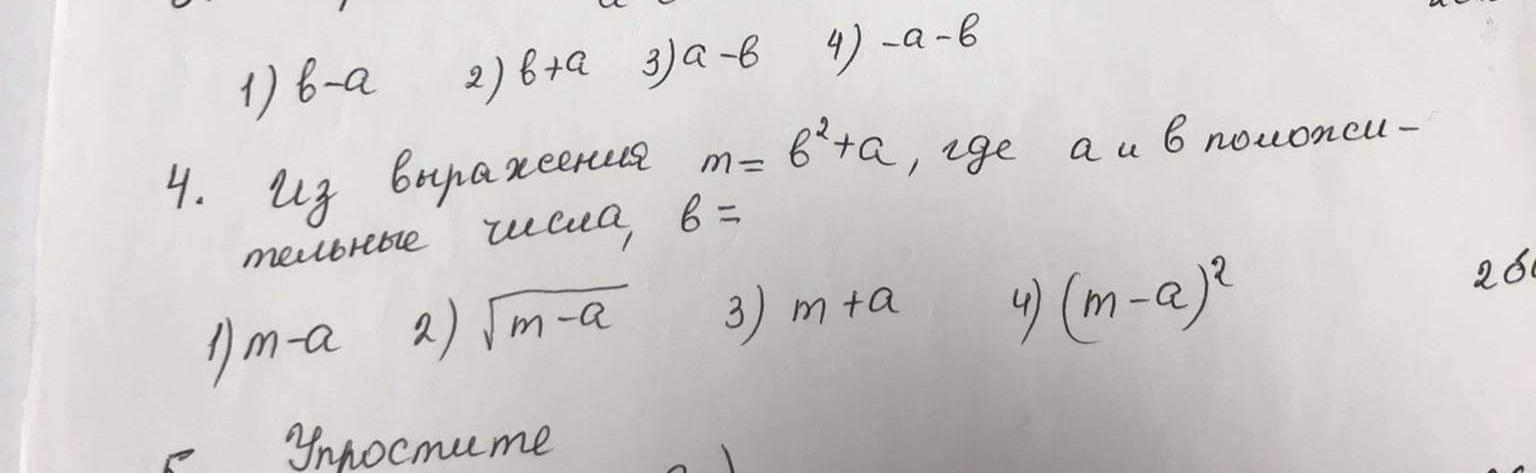 1) в-а 2) в+а 3) а-в 4) -а-в
4. Из выражения m= в²+а, где а и в положи-
тельные числа, в=
1) m-а 2) √m-а 3) m+а 4) (m-а)²
Упростите